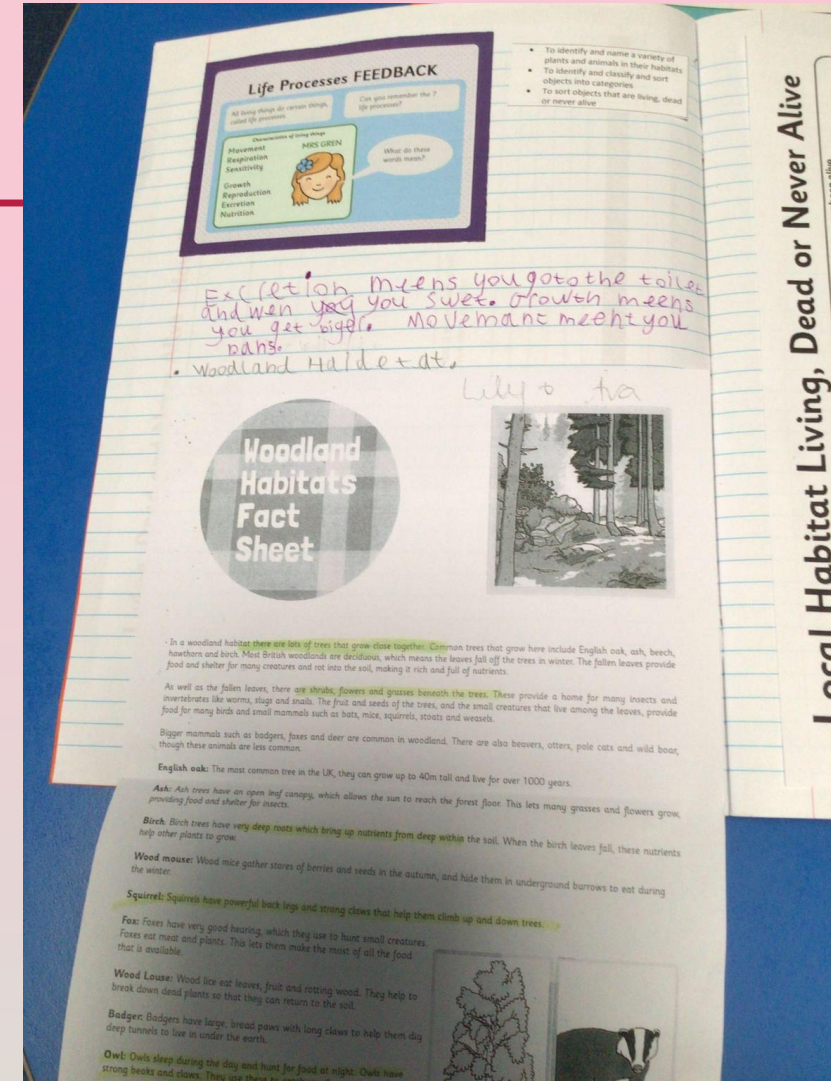 Life Processes FEEDBACK
All living things do certain things,
called life processes.
Can you remember the 7
life processes?
Characteristics of living things
Movement
Respiration
Sensitivity
Growth
Reproduction
Excretion
Nutrition
MRS GREN
What do these
words mean?
• To identify and name a variety of
plants and animals in their habitats
• To identify and classify and sort
objects into categories
• To sort objects that are living, dead
or never alive
Excretion meens you go to the toilet
and wen you you swet. Growth meens
you get biger. Movemant meent you
Woodland
Lily + Ava
Woodland
Habitats
Fact
Sheet
In a woodland habitat there are lots of trees that grow close together. Common trees that grow here include English oak, ash, beech,
hawthorn and birch. Most British woodlands are deciduous, which means the leaves fall off the trees in winter. The fallen leaves provide
food and shelter for many creatures and rot into the soil, making it rich and full of nutrients.
As well as the fallen leaves, there are shrubs, flowers and grasses beneath the trees. These provide a home for many insects and
invertebrates like worms, slugs and snails. The fruit and seeds of the trees, and the small creatures that live among the leaves, provide
food for many birds and small mammals such as bats, mice, squirrels, stoats and weasels.
Bigger mammals such as badgers, foxes and deer are common in woodland. There are also beavers, otters, pole cats and wild boar,
though these animals are less common.
English oak: The most common tree in the UK, they can grow up to 40m tall and live for over 1000 years.
Ash: Ash trees have an open leaf canopy, which allows the sun to reach the forest floor. This lets many grasses and flowers grow,
providing food and shelter for insects.
Birch: Birch trees have very deep roots which bring up nutrients from deep within the soil. When the birch leaves fall, these nutrients
help other plants to grow.
Wood mouse: Wood mice gather stores of berries and seeds in the autumn, and hide them in underground burrows to eat during
the winter.
Squirrel: Squirrels have powerful back legs and strong claws that help them climb up and down trees.
Fox: Foxes have very good hearing, which they use to hunt small creatures.
Foxes eat meat and plants. This lets them make the most of all the food
that is available.
Wood Louse: Wood lice eat leaves, fruit and rotting wood. They help to
break down dead plants so that they can return to the soil.
Badger: Badgers have large, broad paws with long claws to help them dig
deep tunnels to live in under the earth.
Owl: Owls sleep during the day and hunt for food at night. Owls have
strong beaks and claws. They use them to
Local Habitat Living, Dead or Never Alive